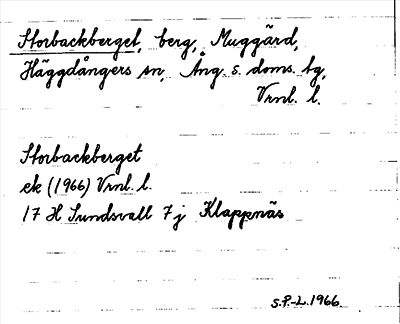 Storbackberget, berg, Muggärd,
Häggdångers sn, Ång. s. doms. tg,
Vrnl. l.
Storbackberget
ek (1966) Vrnl. l.
17 H Sundsvall 7 j Klappnäs
S.P.-L. 1966.